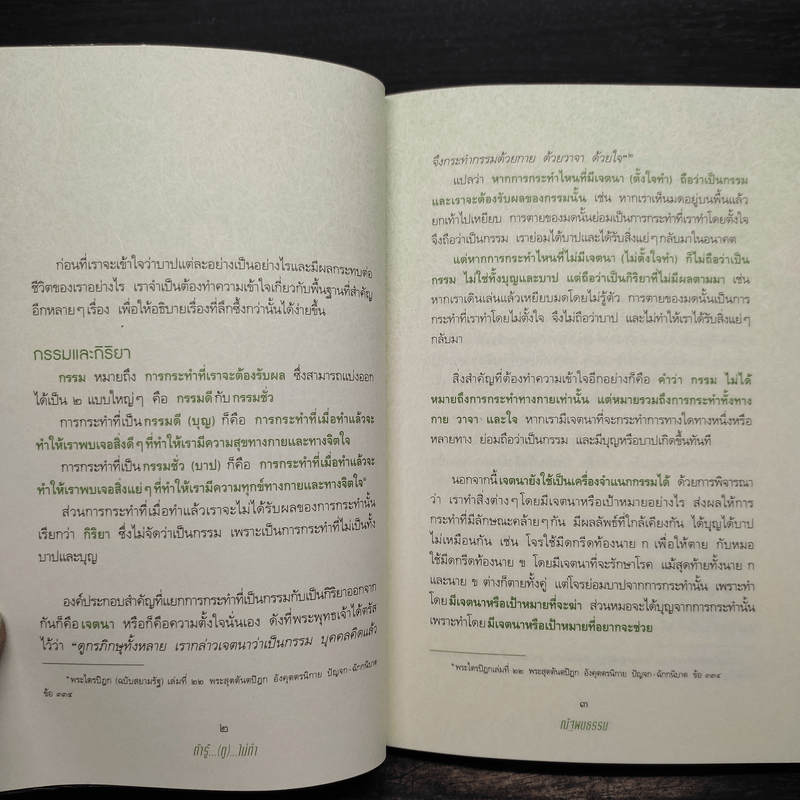 ก่อนที่เราจะเข้าใจว่าบาปแต่ละอย่างเป็นอย่างไรและมีผลกระทบต่อ
ชีวิตของเราอย่างไร เราจำเป็นต้องทำความเข้าใจเกี่ยวกับพื้นฐานที่สำคัญ
อีกหลายๆเรื่อง เพื่อให้อธิบายเรื่องที่ลึกซึ้งกว่านั้นได้ง่ายขึ้น
กรรมและกิริยา
กรรม หมายถึง การกระทำที่เราจะต้องรับผล ซึ่งสามารถแบ่งออก
ได้เป็น ๒ แบบใหญ่ๆ คือ กรรมดีกับกรรมชั่ว
การกระทำที่เป็นกรรมดี (บุญ) ก็คือ การกระทำที่เมื่อทำแล้วจะ
ทำให้เราพบเจอสิ่งดีๆที่ทำให้เรามีความสุขทางกายและทางจิตใจ
การกระทำที่เป็นกรรมชั่ว (บาป) ก็คือ การกระทำที่เมื่อทำแล้วจะ
ทำให้เราพบเจอสิ่งแย่ๆที่ทำให้เรามีความทุกข์ทางกายและทางจิตใจ
ส่วนการกระทำที่เมื่อทำแล้วเราจะไม่ได้รับผลของการกระทำนั้น
เรียกว่า กิริยา ซึ่งไม่จัดว่าเป็นกรรม เพราะเป็นการกระทำที่ไม่เป็นทั้ง
บาปและบุญ
องค์ประกอบสำคัญที่แยกการกระทำที่เป็นกรรมกับเป็นกิริยาออกจาก
กันก็คือเจตนา หรือก็คือความตั้งใจนั่นเอง ดังที่พระพุทธเจ้าได้ตรัส
ไว้ว่า "ดูกรภิกษุทั้งหลาย เรากล่าวเจตนาว่าเป็นกรรม บุคคลคิดแล้ว
*พระไตรปิฎก (ฉบับสยามรัฐ) เล่มที่ ๒๒ พระสุตตันตปิฎก อังคุตตรนิกาย ปัญจก-ฉักกนิบาต
ข้อ ๓๓๔
๒
ถ้ารู้...(กู)...ไม่ทำ
จึงกระทำกรรมด้วยกาย ด้วยวาจา ด้วยใจ"*
แปลว่า หากการกระทำไหนที่มีเจตนา (ตั้งใจทำ) ถือว่าเป็นกรรม
และเราจะต้องรับผลของกรรมนั้น เช่น หากเราเห็นมดอยู่บนพื้นแล้ว
ยกเท้าไปเหยียบ การตายของมดนั้นย่อมเป็นการกระทำที่เราทำโดยตั้งใจ
จึงถือว่าเป็นกรรม เราย่อมได้บาปและได้รับสิ่งแย่ๆกลับมาในอนาคต
แต่หากการกระทำไหนที่ไม่มีเจตนา (ไม่ตั้งใจทำ) ก็ไม่ถือว่าเป็น
กรรม ไม่ใช่ทั้งบุญและบาป แต่ถือว่าเป็นกิริยาที่ไม่มีผลตามมา เช่น
หากเราเดินเล่นแล้วเหยียบมดโดยไม่รู้ตัว การตายของมดนั้นเป็นการ
กระทำที่เราทำโดยไม่ตั้งใจ จึงไม่ถือว่าบาป และไม่ทำให้เราได้รับสิ่งแย่ๆ
กลับมา
สิ่งสำคัญที่ต้องทำความเข้าใจอีกอย่างก็คือ คำว่า กรรม ไม่ได้
หมายถึงการกระทำทางกายเท่านั้น แต่หมายรวมถึงการกระทำทั้งทาง
กาย วาจา และใจ หากเรามีเจตนาที่จะกระทำการทางใดทางหนึ่งหรือ
หลายทาง ย่อมถือว่าเป็นกรรม และมีบุญหรือบาปเกิดขึ้นทันที
นอกจากนี้เจตนายังใช้เป็นเครื่องจำแนกกรรมได้ ด้วยการพิจารณา
ว่า เราทำสิ่งต่างๆโดยมีเจตนาหรือเป้าหมายอย่างไร ส่งผลให้การ
กระทำที่มีลักษณะคล้ายๆกัน มีผลลัพธ์ที่ใกล้เคียงกัน ได้บุญได้บาป
ไม่เหมือนกัน เช่น โจรใช้มีดกรีดท้องนาย ก เพื่อให้ตาย กับหมอ
ใช้มีดกรีดท้องนาย ข โดยมีเจตนาที่จะรักษาโรค แม้สุดท้ายทั้งนาย ก
และนาย ข ต่างก็ตายทั้งคู่ แต่โจรย่อมบาปจากการกระทำนั้น เพราะทำ
โดยมีเจตนาหรือเป้าหมายที่จะฆ่า ส่วนหมอจะได้บุญจากการกระทำนั้น
เพราะทำโดยมีเจตนาหรือเป้าหมายที่อยากจะช่วย
*พระไตรปิฎกเล่มที่ ๒๒ พระสุตตันตปิฎก อังคุตตรนิกาย ปัญจก-ฉักกนิบาต ข้อ ๓๓๔
๓
ณัฐพบธรรม